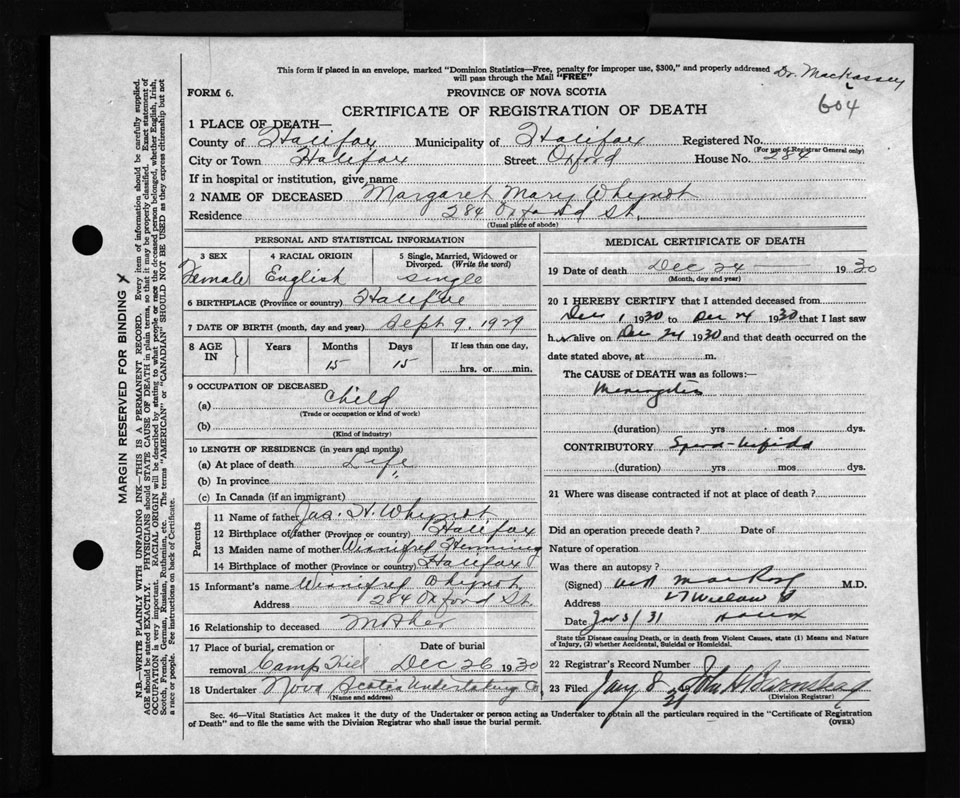 This form if placed in an envelope, marked "Dominion Statistics—Free, penalty for improper use, $300," and properly addressed
will pass through the Mail "FREE"
604
FORM 6.
PROVINCE OF NOVA SCOTIA
CERTIFICATE OF REGISTRATION OF DEATH
1 PLACE OF DEATH—
County of Halifax Municipality of Halifax Registered No.
(For use of Registrar General only)
City or Town Halifax Street Oxford House No. 284
If in hospital or institution, give name
2 NAME OF DECEASED Margaret Mary Whynot
Residence 284 Oxford St.
(Usual place of abode)
PERSONAL AND STATISTICAL INFORMATION
3 SEX 4 RACIAL ORIGIN 5 Single, Married, Widowed or
Divorced. (Write the word)
Female English Single
6 BIRTHPLACE (Province or country) Halifax
7 DATE OF BIRTH (month, day and year) Sept 9, 1929
8 AGE
IN
Years Months Days If less than one day,
15 15 hrs. or min.
9 OCCUPATION OF DECEASED
(a) Child
(Trade or occupation or kind of work)
(b)
(Kind of industry)
10 LENGTH OF RESIDENCE (in years and months)
(a) At place of death Life
(b) In province "
(c) In Canada (if an immigrant)
Parents
11 Name of father Jas. H. Whynot
12 Birthplace of father (Province or country) Halifax
13 Maiden name of mother Winnifred Henning
14 Birthplace of mother (Province or country) Halifax
15 Informant's name Winnifred Whynot
Address 284 Oxford St.
16 Relationship to deceased Mother
17 Place of burial, cremation or Date of burial
removal Camp Hill Dec 26 1930
18 Undertaker Nova Scotia Undertaking Co
(Name and address)
MEDICAL CERTIFICATE OF DEATH
19 Date of death Dec 24 1930
(Month, day and year)
20 I HEREBY CERTIFY that I attended deceased from
Dec 1 1930 to Dec 24 1930 that I last saw
her alive on Dec 24 1930 and that death occurred on the
date stated above, at m.
The CAUSE of DEATH was as follows:—
Meningitis
(duration) yrs mos dys.
CONTRIBUTORY
(duration) yrs. mos. dys.
21 Where was disease contracted if not at place of death?
Did an operation precede death? Date of
Nature of operation
Was there an autopsy?
(Signed) M.D.
Address 17 Willow St
Date Jan 3/31
State the Disease causing Death, or in death from Violent Causes, state (1) Means and Nature
of Injury, (2) whether Accidental, Suicidal or Homicidal.
22 Registrar's Record Number
23 Filed Jany 8 31 John H
(Division Registrar)
Sec. 46—Vital Statistics Act makes it the duty of the Undertaker or person acting as Undertaker to obtain all the particulars required in the "Certificate of Registration
of Death" and to file the same with the Division Registrar who shall issue the burial permit.
(OVER)
MARGIN RESERVED FOR BINDING X
N.B.—WRITE PLAINLY WITH UNFADING INK—THIS IS A PERMANENT RECORD. Every item of information should be carefully supplied.
AGE should be stated EXACTLY. PHYSICIANS should STATE CAUSE OF DEATH in plain terms, so that it may be properly classified. Exact statement of
OCCUPATION is very important. RACIAL ORIGIN will be described by stating to what people or race the deceased person belonged, whether English, Irish,
Scotch, French, German, Russian, Ruthenian, etc. The terms "AMERICAN" or "CANADIAN" SHOULD NOT BE USED as they express citizenship but not
a race or people. See instructions on back of Certificate.